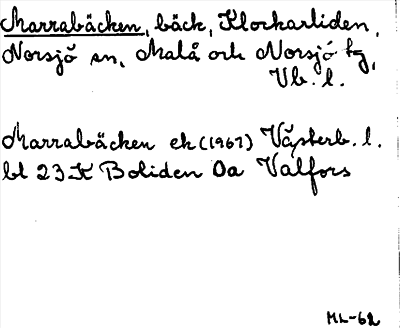 Marrabäcken, bäck, Klockarliden,
Norsjö sn, Malå och Norsjö tg,
Vb. l.
Marrabäcken ek (1967) Västerb. l.
bl 23 K Boliden 0a Valfors
ML-62